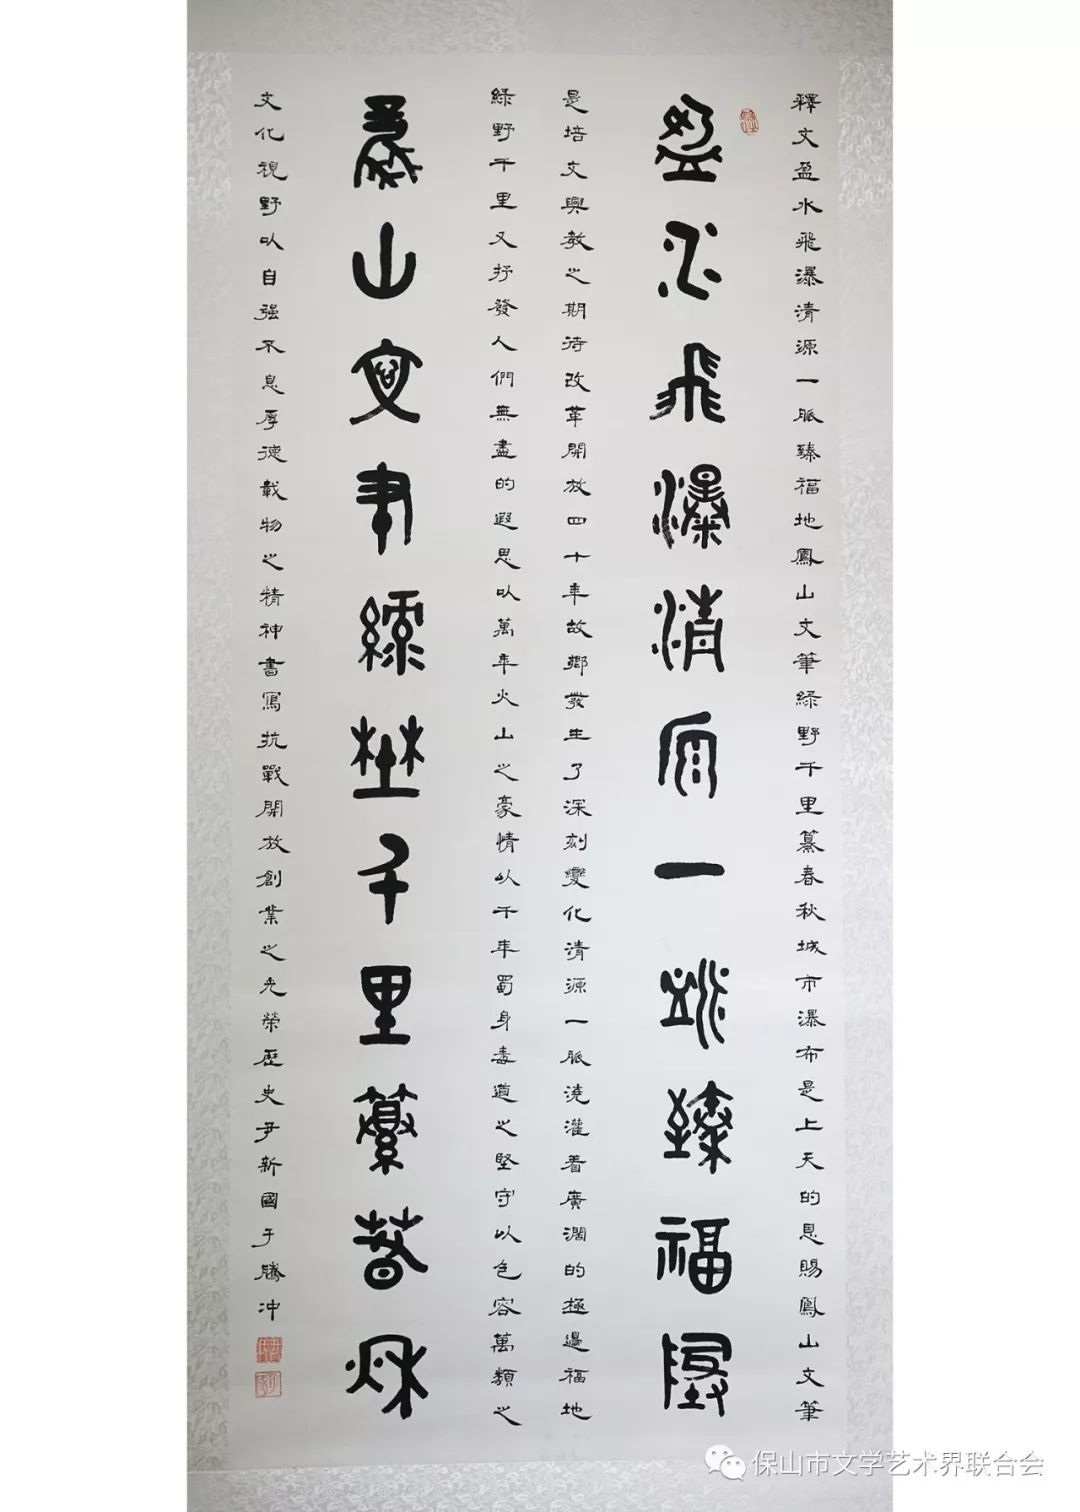 釋文盈水飛瀑清源一脈臻福地鳳山文筆綠野千里纂春秋城市瀑布是上天的恩賜鳳山文筆
盈水飛瀑清源一脈臻福地
是培文興教之期待改革開放四十年故鄉發生了深刻變化清源一脈澆灌着廣濶的極邊福地
綠野千里又抒發人們無盡的遐思以萬年火山之豪情以千年蜀身毒道之堅守以包容萬類之
鳳山文筆綠野千里纂春秋
文化視野以自强不息厚德載物之精神書寫抗戰開放創業之光榮歷史尹新國于騰冲
保山市文学艺术界联合会